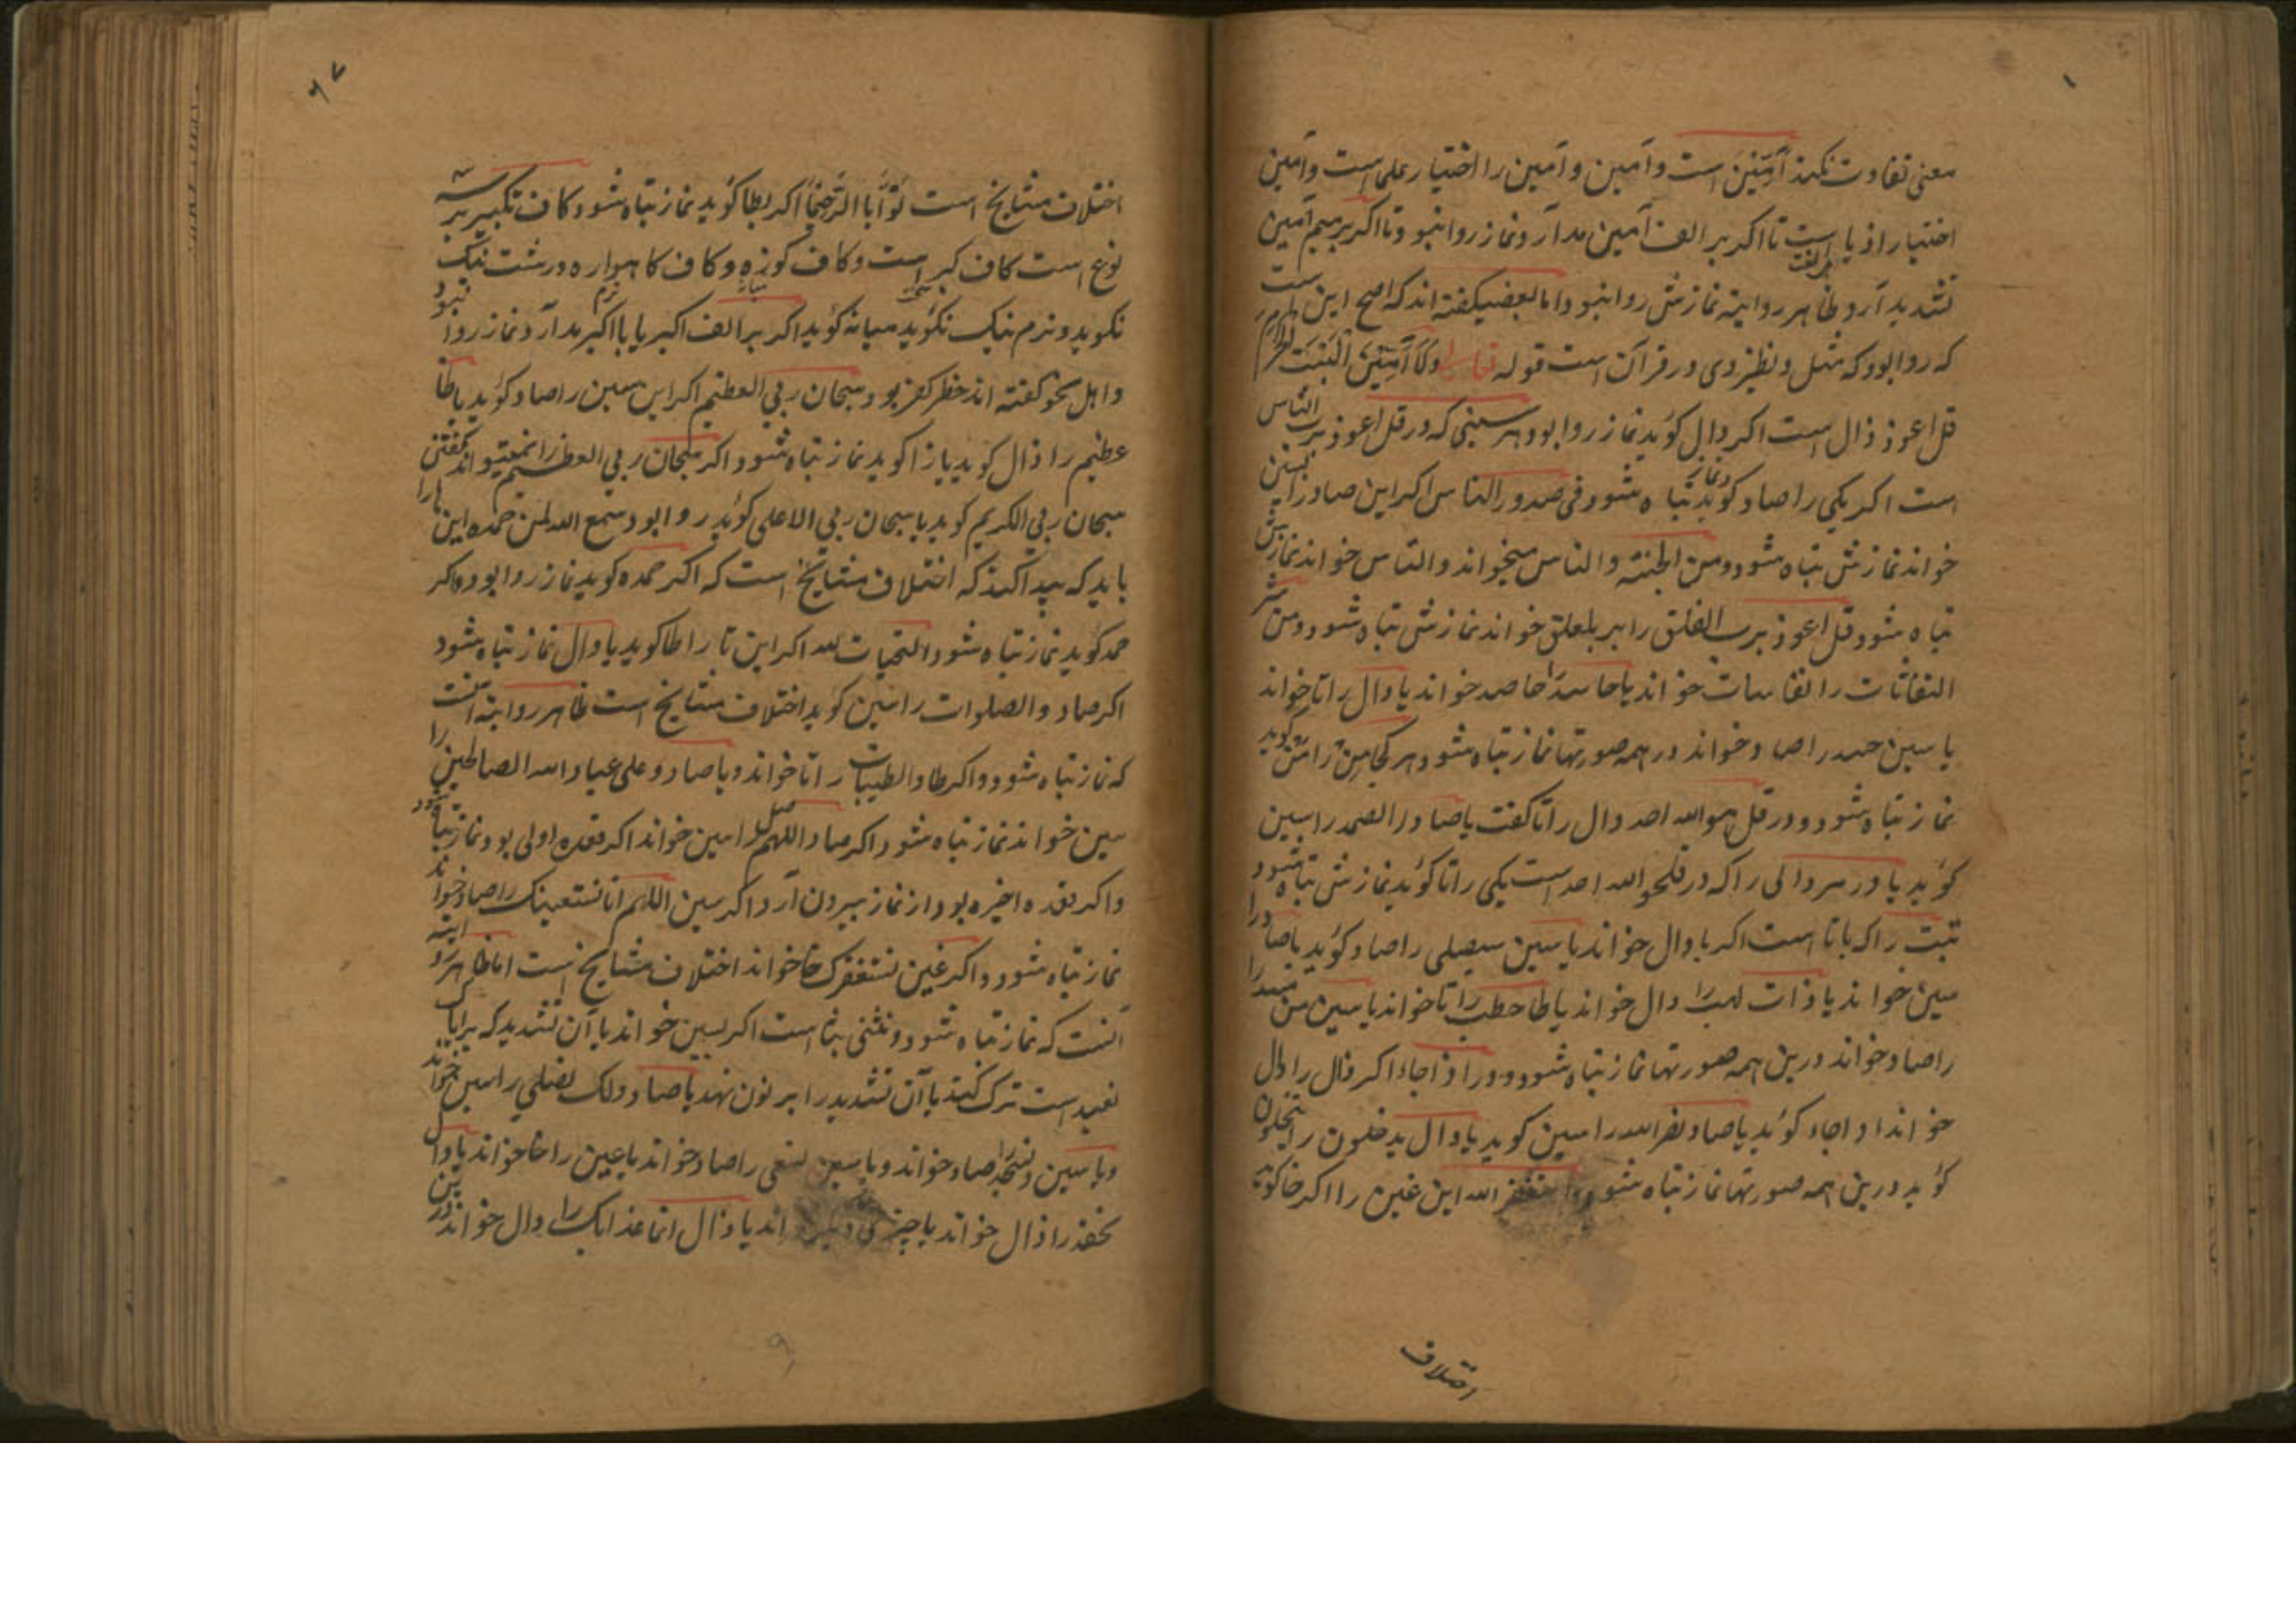 معنی تفاوت نکند آمّین است وآمین وآمین را اختیار علما است وآمین
اختیار ادبا است تا اکر بر الف آمین مد آرد نماز روا نبود وتا اکر بر میم آمین
تشدید آرد بظاهر روایته نمازش روا نبود اما بعضی کفته اند که اصح این است
که روا بود که مثل ونظیر وی در قرآن است قوله تعالی ولا آمین البیت الحرام
قل اعوذ ذال است اکر دال کوید نماز روا بود وهر سینی که در قل اعوذ برب الناس
است اکر یکی را صاد کوید نماز تباه شود وفی صدور الناس اکر این صاد را سین
خواند نمازش تباه شود ومن الجنته والناس میخواند والتاس خواند نمازش
تباه شود قل اعوذ برب الفلق را برب لعلق خواند نمازش تباه شود ومن شر
النفاثات را نفاسات خواند یا حاسد را حاصد خواند یا دال را تا خواند
یا سین حسد را صاد خواند در همه صورتها نماز تباه شود هر کجا من را مش کوید
نماز تباه شود ودر قل هو الله احد دال را تا کفت یا صاد را الصمد را سین
کوید یا در هر دالی را که در قلهو الله احد است یکی را تا کوید نمازش تباه شود
تبت را که با تا است اکر با دال خواند یا سین سیصلی را صاد کوید یا صاد را
سین خواند یا ذات لهب را دال خواند یا طا حطب را تا خواند یا سین من مسد را
صاد خواند درین همه صورتها نماز تباه شود ودر اذا جاء اکر ذال را دال
خواند ادا جاء کوید یا صاد نصر الله را سین کوید یا دال یدخلون را یتخلون
کوید درین همه صورتها نماز تباه شود استغفر الله این غین را اکر خا کوید
اختلاف
۹۷
اختلاف مشایخ است توّابا الرّحیما اکر بطا کوید نماز تباه شود کاف تکبیر بر سه
نوع است کاف کبر است وکاف کوزه وکاف کاهواره درشت نیک
نکوید ونرم نیک نکوید میانه کوید اکر بر الف اکبر یا با اکبر مد آرد نماز روا نبود
واهل نحو کفته اند خطر کفر بود سبحان ربی العظیم اکر این سین را صاد کوید یا ظا
عظیم را ذال کوید یا زا کوید نماز تباه شود اکر سبحان ربی العظیم را نمیتواند کفتن
سبحان ربی الکریم کوید یا سبحان ربی الاعلی کوید روا بود سمع الله لمن حمده این ها را
باید که پیدا کند که اختلاف مشایخ است که اکر حمده کوید نماز روا بود واکر
حمد کوید نماز تباه شود التحیات لله اکر این تا را طا کوید یا دال نماز تباه شود
اکر صاد والصلوات را سین کوید اختلاف مشایخ است ظاهر روایته آنست
که نماز تباه شود واکر طا والطیبات را تا خواند ویا صاد وعلی عباد الله الصالحین را
سین خواند نماز تباه شود اکر صاد اللهم صل را سین خواند اکر قعده اولی بود نماز تباه شود
واکر قعده اخیره بود از نماز بیرون آرد اکر سین اللهم انا نستعینک را صاد خواند
نماز تباه شود واکر غین نستغفرک خا خواند اختلاف مشایخ است اما ظاهر روایته
آنست که نماز تباه شود ونثنی بثا است اکر بسین خواند یا آن تشدید که بر ایاک
نعبد است ترک کند یا آن تشدید را بر نون نهد یا صاد ولک نصلی را سین خواند
ویا سین ونسجد را صاد خواند ویا سین نسعی را صاد خواند یا عین را خا خواند یا دال
نحفد را ذال خواند یا چیز یا ذال ان عذابک را دال خواند درین